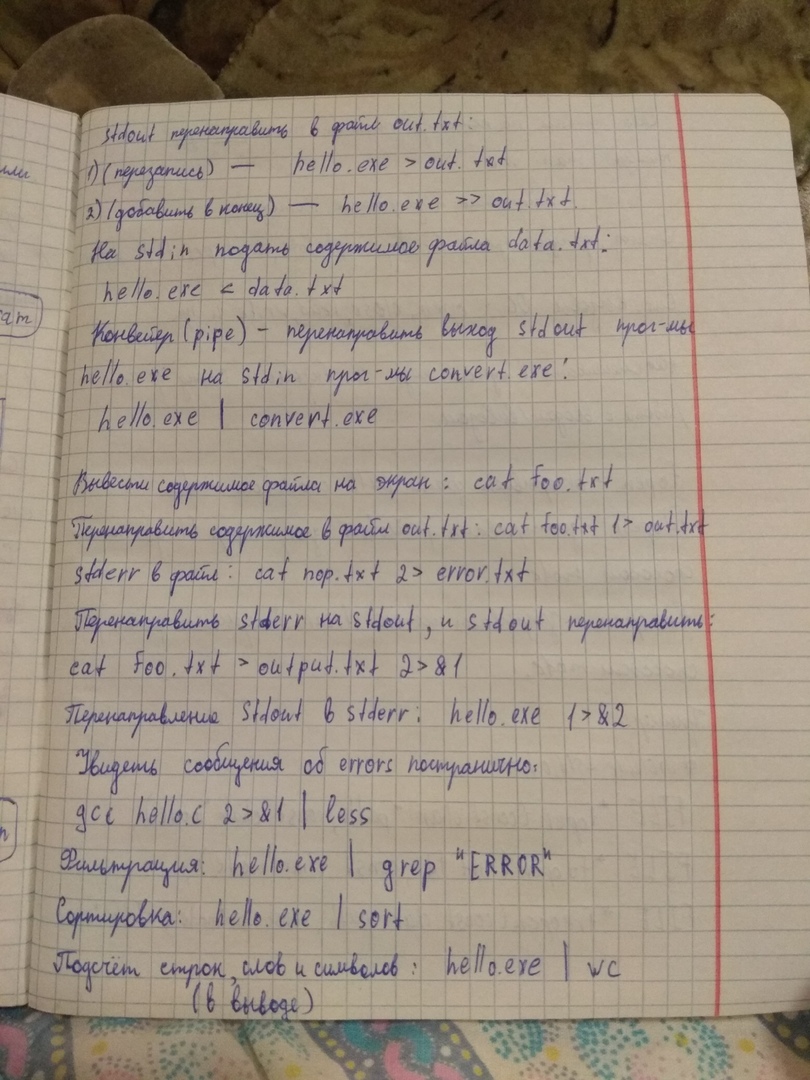 stdout перенаправить в файл out.txt:
1) (перезапись) — hello.exe > out.txt
2) (добавить в конец) — hello.exe >> out.txt.
На stdin подать содержимое файла data.txt:
hello.exe < data.txt
Конвейер (pipe) – перенаправить выход stdout прог-мы
hello.exe на stdin прог-мы convert.exe:
hello.exe | convert.exe
Вывести содержимое файла на экран: cat foo.txt
Перенаправить содержимое в файл out.txt: cat foo.txt 1> out.txt
stderr в файл: cat nop.txt 2> error.txt
Перенаправить stderr на stdout, и stdout перенаправить:
cat foo.txt > output.txt 2>&1
Перенаправление stdout в stderr: hello.exe 1>&2
Увидеть сообщения об errors постранично:
gcc hello.c 2>&1 | less
Фильтрация: hello.exe | grep "ERROR"
Сортировка: hello.exe | sort
Подсчёт строк, слов и символов: hello.exe | wc
(в выводе)